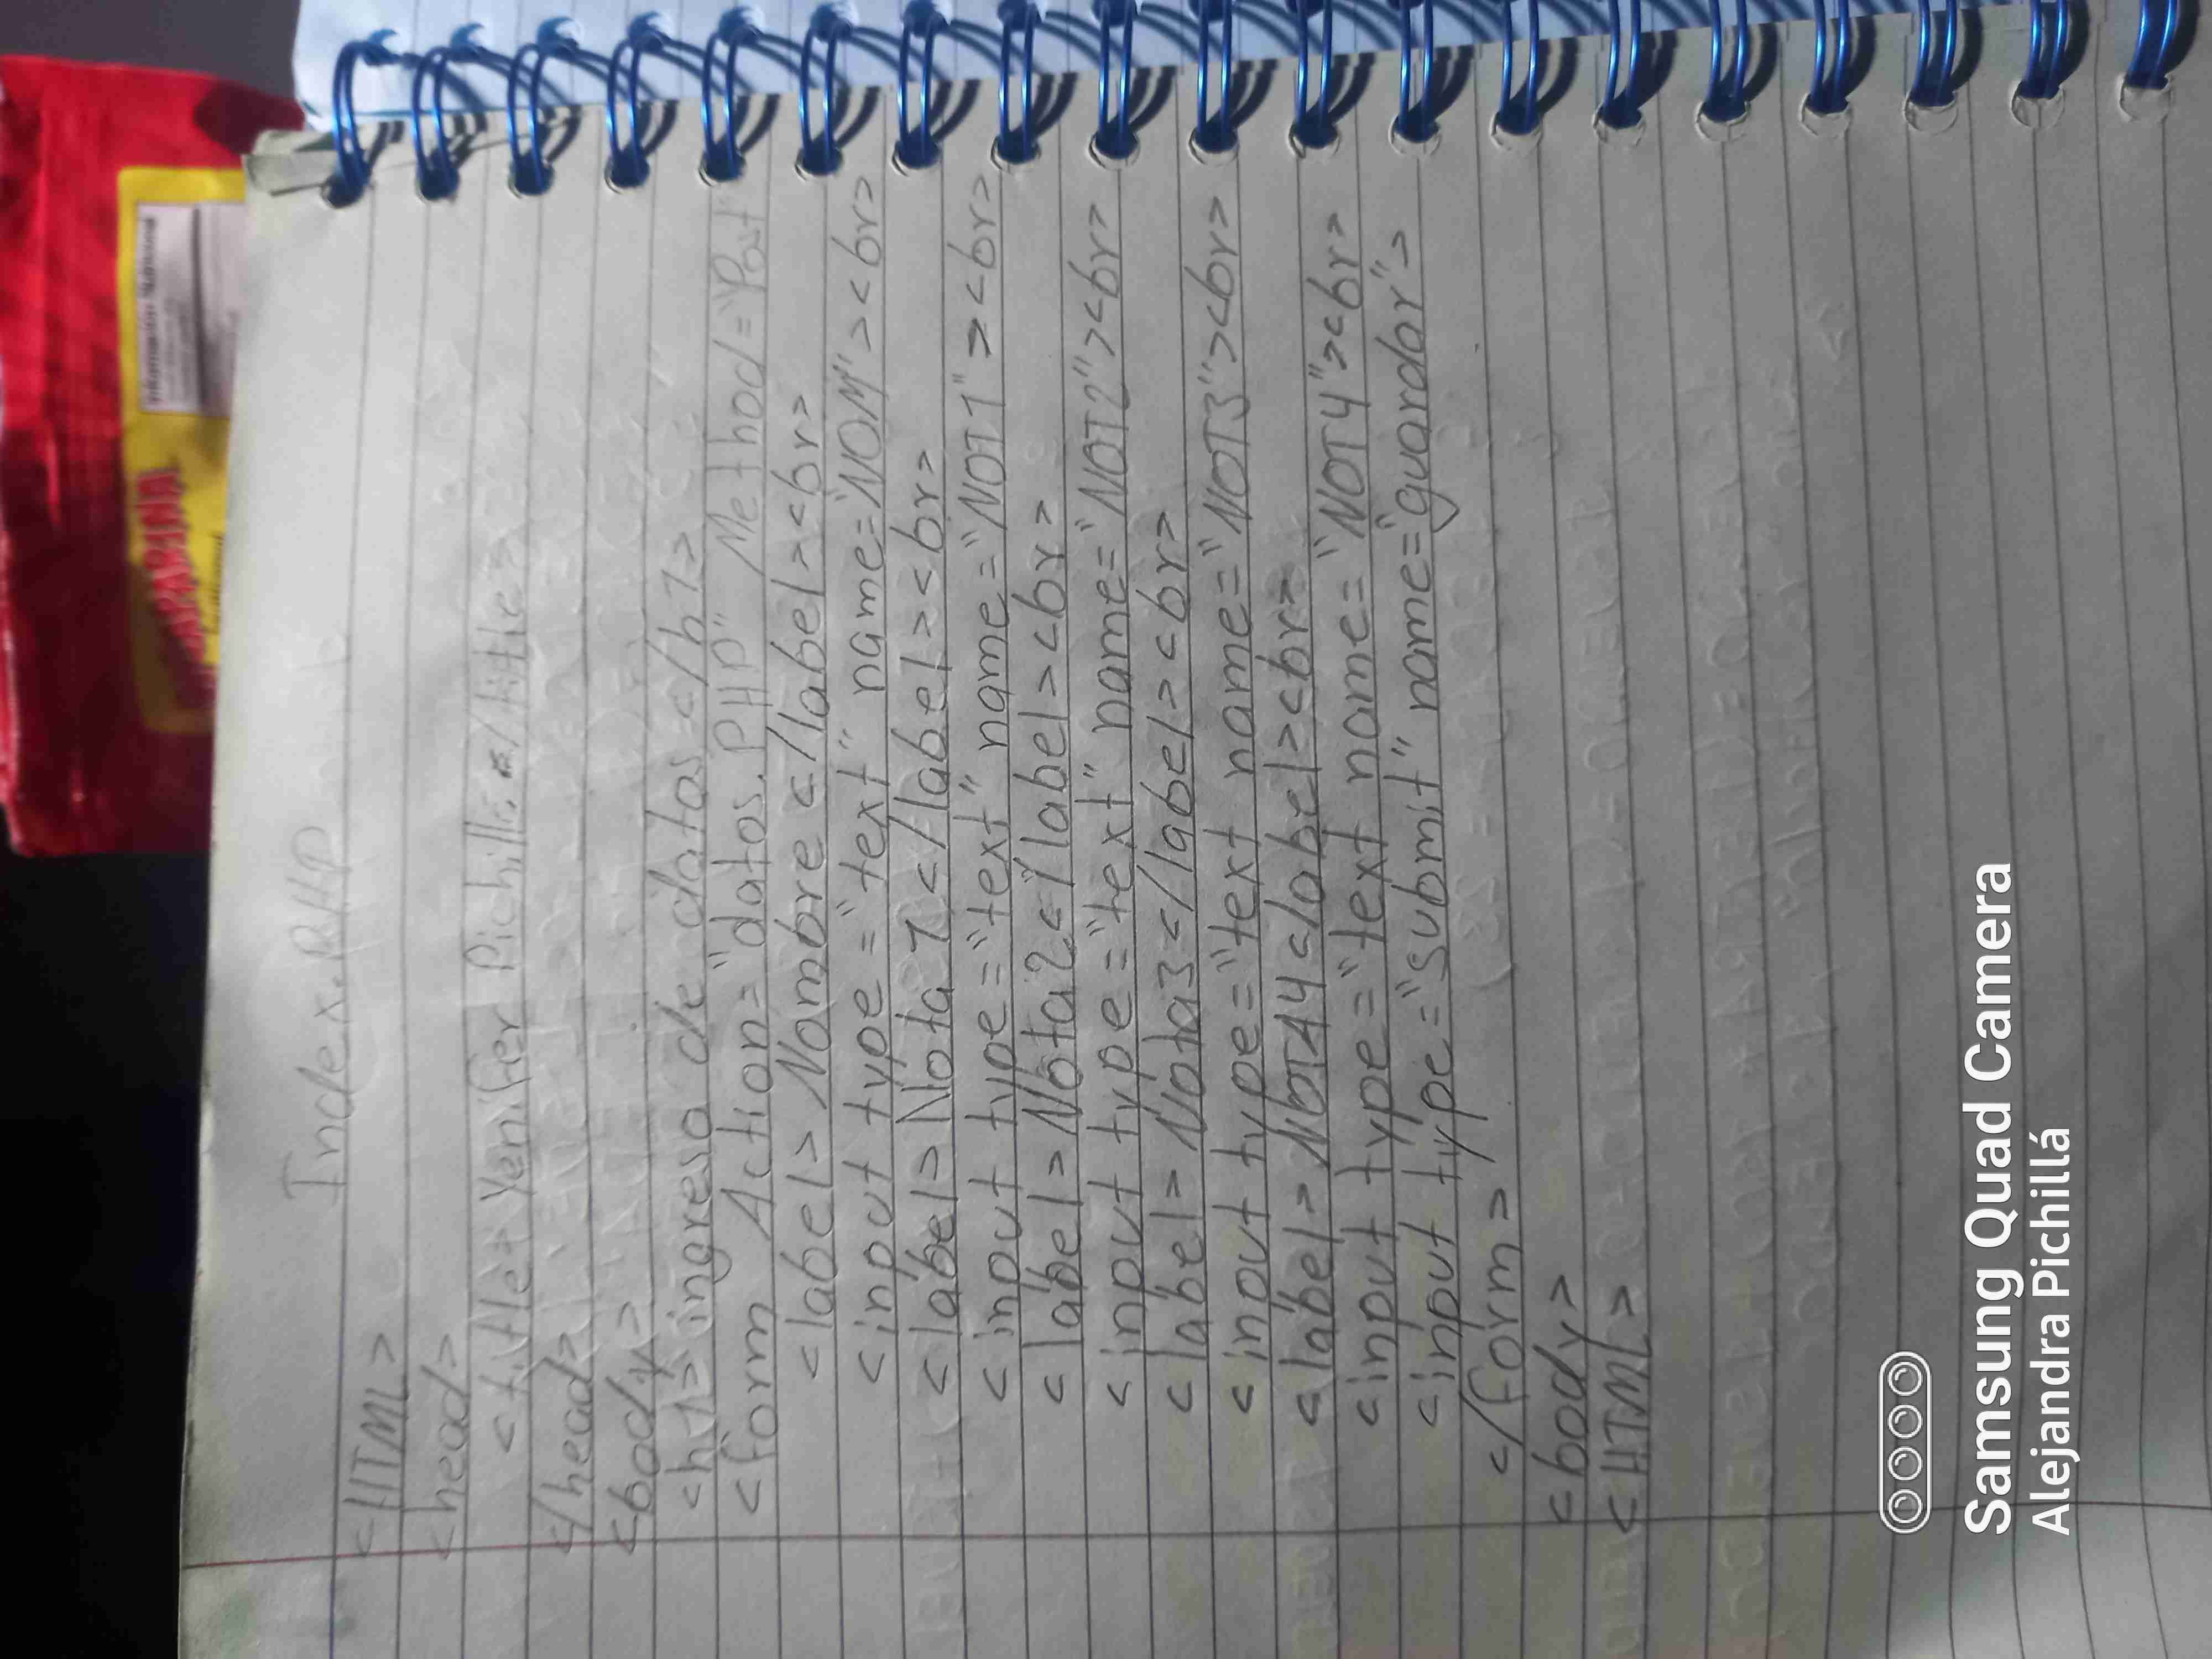 Index.PHP
<HTML>
<head>
<title> Yenifer Pichilli </title>
</head>
<body>
<h1> ingreso de datos </h1>
<form Action="datos.PHP" Method="Post"
<label> Nombre </label><br>
<input type="text" name="NOM"><br>
<label> Nota 1 </label><br>
<input type="text" name="NOT1"><br>
<label> Nota2 </label><br>
<input type="text" name="NOT2"><br>
<label> Nota3 </label><br>
<input type="text name="NOT3"><br>
<label> NOTA4 </label><br>
<input type="text name="NOT4"><br>
<input type="submit" name="guardar">
</form>
<body>
<HTML>
Samsung Quad Camera
Alejandra Pichillá